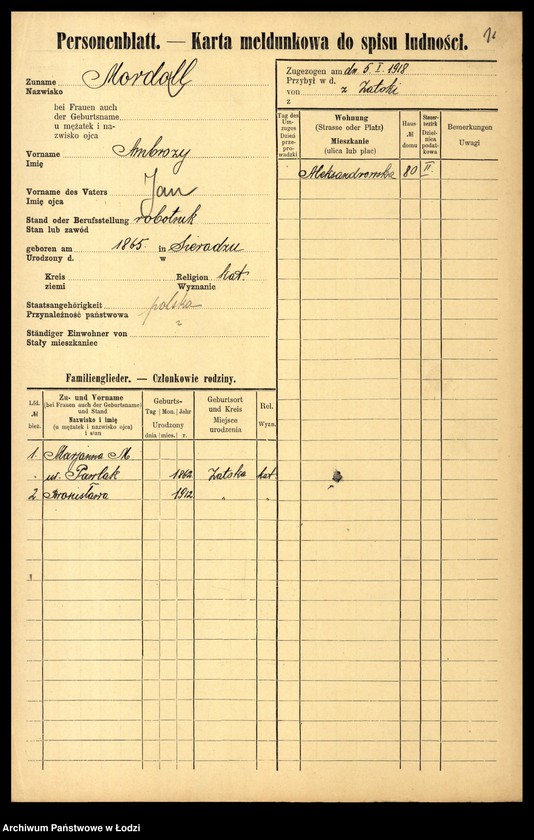 Personenblatt. — Karta meldunkowa do spisu ludności.
Zuname
Nazwisko
Mordoll
bei Frauen auch
der Geburtsname
u mężatek i na-
zwisko ojca
Vorname
Imię
Ambrozy
Vorname des Vaters
Imię ojca
Jan
Stand oder Berufsstellung robotnik
Stan lub zawód
geboren am 1865. in Sieradzu
Urodzony d. w
Kreis
ziemi
Religion kat.
Wyznanie
Staatsangehörigkeit
Przynależność państwowa
polska
Ständiger Einwohner von
Stały mieszkaniec
Zugezogen am dn. 5. I. 1918
Przybył w d.
von z Zatoki
z
Tag des
Um-
zuges
Dzień
prze-
pro-
wadzki
Wohnung
(Strasse oder Platz)
Mieszkanie
(ulica lub plac)
Haus-
№
domu
Steuer-
bezirk
Dziel-
nica
podat-
kowa
Bemerkungen
Uwagi
Aleksandrowska 80 II.
Familienglieder. — Członkowie rodziny.
Lfd.
№
bież.
Zu- und Vorname
(bei Frauen auch der Geburtsname)
und Stand
Nazwisko i imię
(u mężatek i nazwisko ojca)
i stan
Geburts-
Tag | Mon. | Jahr
Urodzony
dnia | mies. | r.
Geburtsort
und Kreis
Miejsce
urodzenia
Rel.
Wyzn.
1. Marjanna M
ur. Pawlak 1862 Zatoka kat
2. Bronisława 1912 " "
Archiwum Państwowe w Łodzi